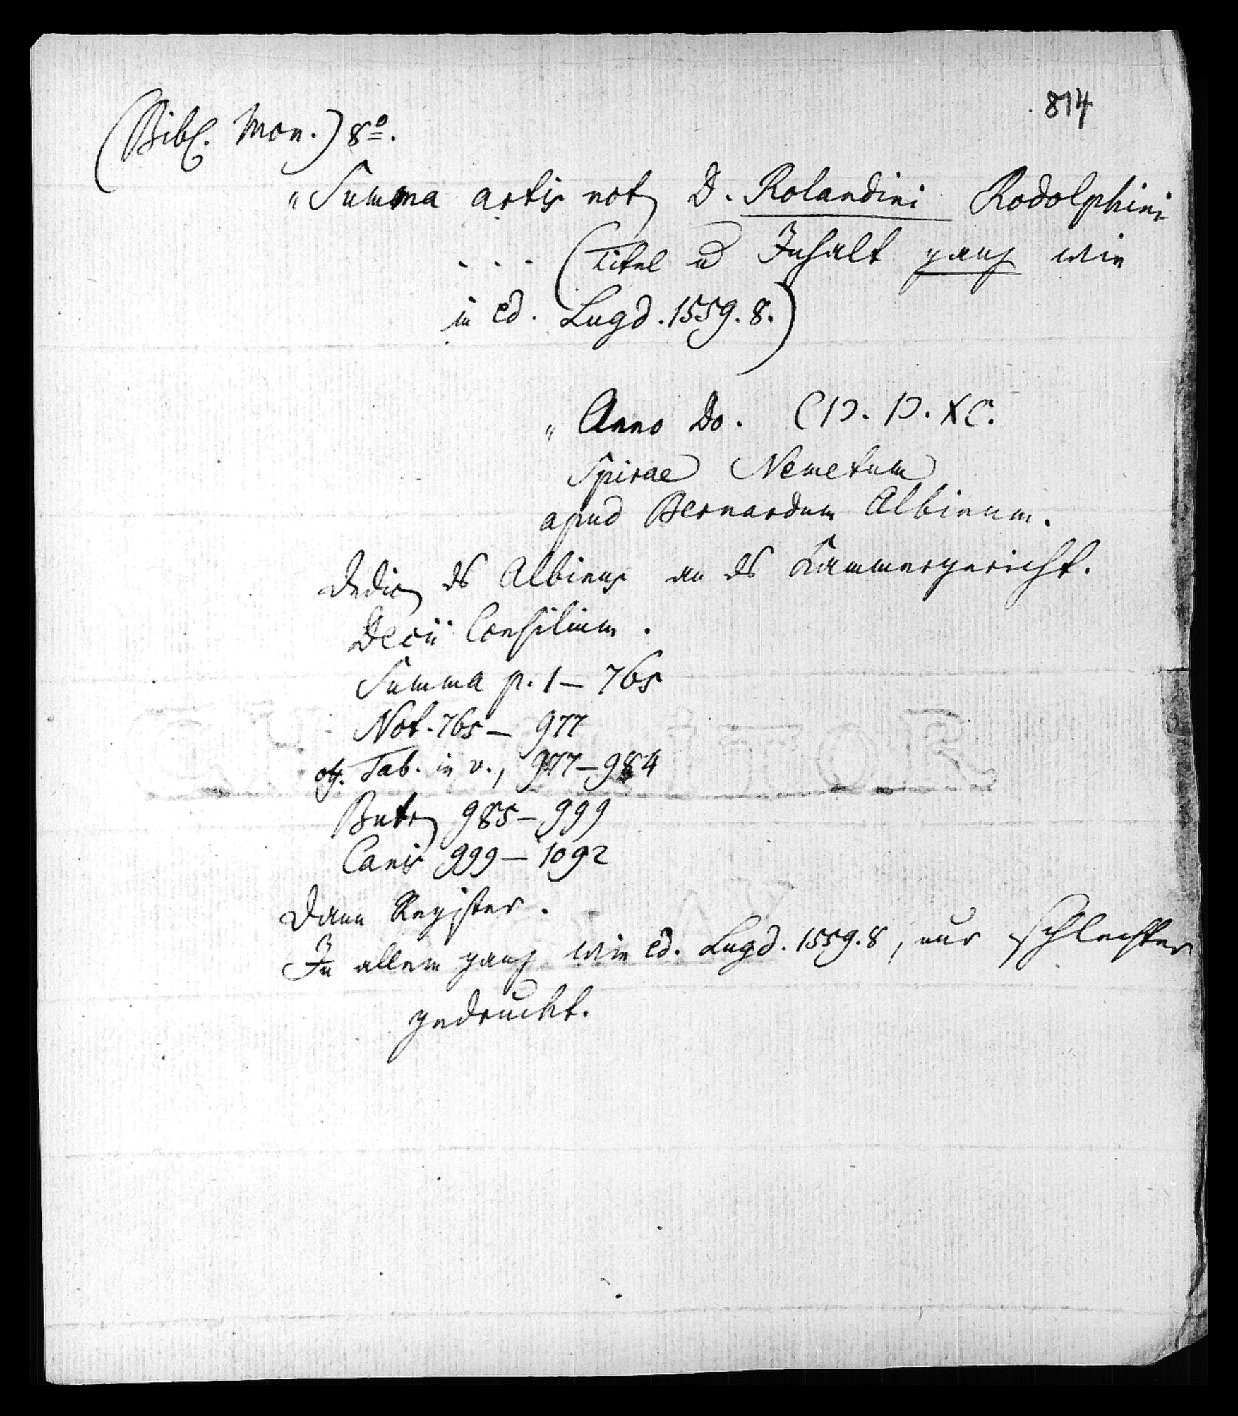 814
(Bibl. Mon.) 8º.
„Summa artis not. D. Rolandini Rodolphini
. . . (Titel u Inhalt ganz wie
in ed. Lugd. 1559. 8.)
„Anno Do. CIↃ. IↃ. XC.
Spirae Nemetum
apud Bernardum Albinum.
Dedic. des Albinus an das Kammergericht.
Decii Consilium.
Summa p. 1 – 765
Not. 765 – 977
Tab. in v., 977–984
Butr. 985–999
Canis 999–1092
Dann Register.
In allem ganz wie ed. Lugd. 1559. 8, nur schlechter
gedruckt.